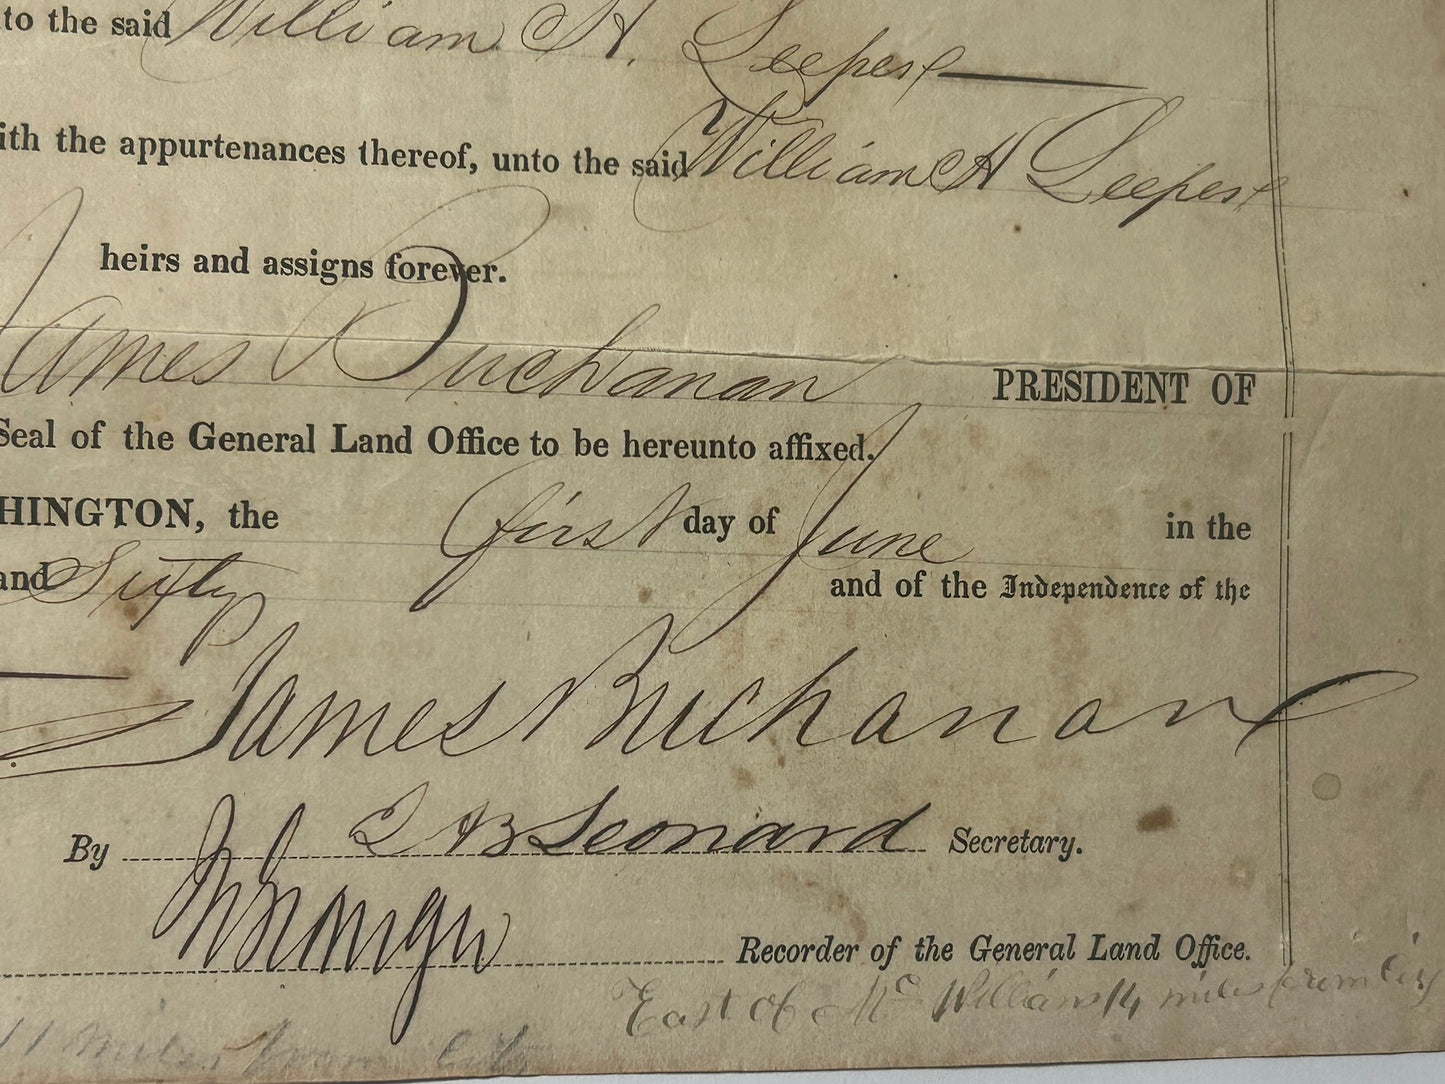 to the said William H. Leeper
ith the appurtenances thereof, unto the said William H Leeper
heirs and assigns forever.
James Buchanan PRESIDENT OF
Seal of the General Land Office to be hereunto affixed.
HINGTON, the first day of June in the
and Sixty and of the Independence of the
James Buchanan
By J. A B Leonard Secretary.
Recorder of the General Land Office.
East of Mc Williams 14 miles from City
11 miles from City